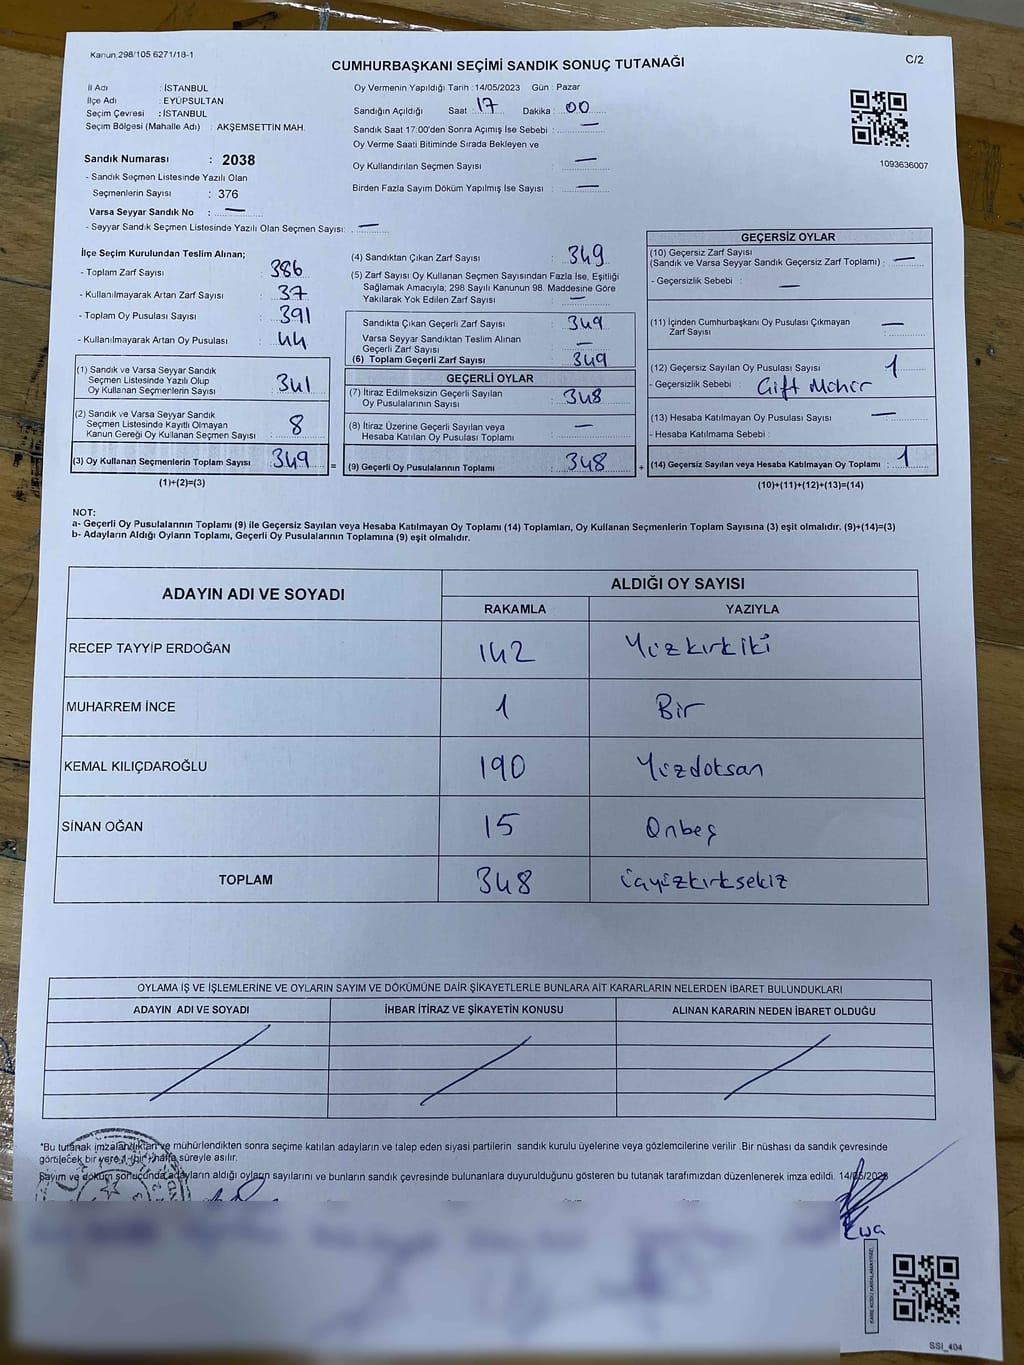 Kanun 298/105 6271/18-1
CUMHURBAŞKANI SEÇİMİ SANDIK SONUÇ TUTANAĞI
C/2
İl Adı : İSTANBUL
İlçe Adı : EYÜPSULTAN
Seçim Çevresi : İSTANBUL
Seçim Bölgesi (Mahalle Adı) : AKŞEMSETTİN MAH.
Sandık Numarası : 2038
- Sandık Seçmen Listesinde Yazılı Olan
Seçmenlerin Sayısı : 376
Varsa Seyyar Sandık No : —
- Seyyar Sandık Seçmen Listesinde Yazılı Olan Seçmen Sayısı: —
Oy Vermenin Yapıldığı Tarih : 14/05/2023 Gün : Pazar
Sandığın Açıldığı Saat : 17 Dakika : 00
Sandık Saat 17:00'den Sonra Açımış İse Sebebi : —
Oy Verme Saati Bitiminde Sırada Bekleyen ve
Oy Kullandırılan Seçmen Sayısı : —
Birden Fazla Sayım Döküm Yapılmış İse Sayısı : —
1093636007
İlçe Seçim Kurulundan Teslim Alınan;
- Toplam Zarf Sayısı : 386
- Kullanılmayarak Artan Zarf Sayısı : 37
- Toplam Oy Pusulası Sayısı : 391
- Kullanılmayarak Artan Oy Pusulası : 44
(1) Sandık ve Varsa Seyyar Sandık
Seçmen Listesinde Yazılı Olup
Oy Kullanan Seçmenlerin Sayısı : 341
(2) Sandık ve Varsa Seyyar Sandık
Seçmen Listesinde Kayıtlı Olmayan
Kanun Gereği Oy Kullanan Seçmen Sayısı : 8
(3) Oy Kullanan Seçmenlerin Toplam Sayısı : 349
(1)+(2)=(3)
(4) Sandıktan Çıkan Zarf Sayısı : 349
(5) Zarf Sayısı Oy Kullanan Seçmen Sayısından Fazla İse, Eşitliği
Sağlamak Amacıyla; 298 Sayılı Kanunun 98. Maddesine Göre
Yakılarak Yok Edilen Zarf Sayısı : —
Sandıkta Çıkan Geçerli Zarf Sayısı : 349
Varsa Seyyar Sandıktan Teslim Alınan
Geçerli Zarf Sayısı : —
(6) Toplam Geçerli Zarf Sayısı : 349
GEÇERLİ OYLAR
(7) İtiraz Edilmeksizin Geçerli Sayılan
Oy Pusulalarının Sayısı : 348
(8) İtiraz Üzerine Geçerli Sayılan veya
Hesaba Katılan Oy Pusulası Toplamı : —
= (9) Geçerli Oy Pusulalarının Toplamı : 348 +
GEÇERSİZ OYLAR
(10) Geçersiz Zarf Sayısı
(Sandık ve Varsa Seyyar Sandık Geçersiz Zarf Toplamı) : —
- Geçersizlik Sebebi : —
(11) İçinden Cumhurbaşkanı Oy Pusulası Çıkmayan
Zarf Sayısı : —
(12) Geçersiz Sayılan Oy Pusulası Sayısı : 1
- Geçersizlik Sebebi : Çift Mühür
(13) Hesaba Katılmayan Oy Pusulası Sayısı : —
- Hesaba Katılmama Sebebi :
(14) Geçersiz Sayılan veya Hesaba Katılmayan Oy Toplamı : 1
(10)+(11)+(12)+(13)=(14)
NOT:
a- Geçerli Oy Pusulalarının Toplamı (9) ile Geçersiz Sayılan veya Hesaba Katılmayan Oy Toplamı (14) Toplamları, Oy Kullanan Seçmenlerin Toplam Sayısına (3) eşit olmalıdır. (9)+(14)=(3)
b- Adayların Aldığı Oyların Toplamı, Geçerli Oy Pusulalarının Toplamına (9) eşit olmalıdır.
ADAYIN ADI VE SOYADI
ALDIĞI OY SAYISI
RAKAMLA YAZIYLA
RECEP TAYYİP ERDOĞAN 142 Yüzkırkiki
MUHARREM İNCE 1 Bir
KEMAL KILIÇDAROĞLU 190 Yüzdoksan
SİNAN OĞAN 15 Onbeş
TOPLAM 348 üçyüzkırksekiz
OYLAMA İŞ VE İŞLEMLERİNE VE OYLARIN SAYIM VE DÖKÜMÜNE DAİR ŞİKAYETLERLE BUNLARA AİT KARARLARIN NELERDEN İBARET BULUNDUKLARI
ADAYIN ADI VE SOYADI İHBAR İTİRAZ VE ŞİKAYETİN KONUSU ALINAN KARARIN NEDEN İBARET OLDUĞU
*Bu tutanak imzalandıktan ve mühürlendikten sonra seçime katılan adayların ve talep eden siyasi partilerin sandık kurulu üyelerine veya gözlemcilerine verilir. Bir nüshası da sandık çevresinde
görülecek bir yere 1 (bir) hafta süreyle asılır.
Sayım ve döküm sonucunda adayların aldığı oyların sayılarını ve bunların sandık çevresinde bulunanlara duyurulduğunu gösteren bu tutanak tarafımızdan düzenlenerek imza edildi. 14/05/2023
SSI_404